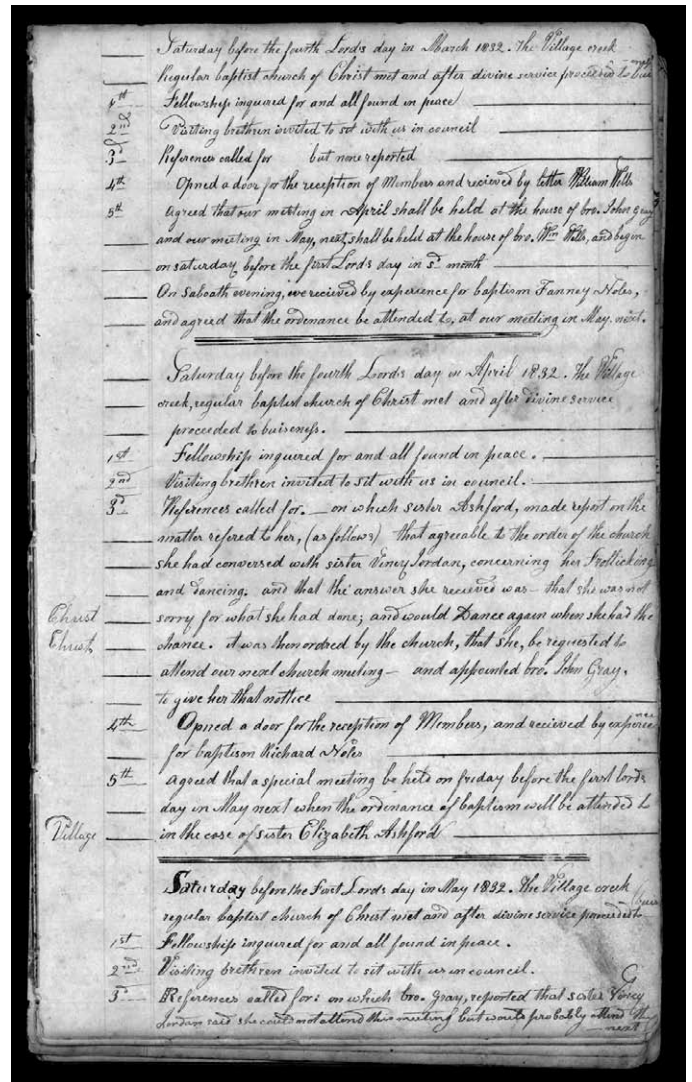 Saturday before the fourth Lord's day in March 1832. The Village creek
Regular baptist church of Christ met and after divine service proceeded to
1st Fellowship inquired for and all found in peace
2nd Visiting brethren invited to sit with us in council
3d References called for but none reported
4th Opned a door for the reception of Members and recieved by letter William Wills
5th agreed that our meeting in April shall be held at the house of bro. John Gray
and our meeting in May, next, shall be held at the house of bro. Wm Wills, and begin
on saturday before the first Lords day in sd month
On Saboath evening, we recieved by experience for baptism Fanney Notes,
and agreed that the ordenance be attended to, at our meeting in May next.
Saturday before the fourth Lords day in April 1832. The Village
creek, regular baptist church of Christ met and after divine service
proceeded to buiseness.
1st Fellowship inquired for and all found in peace.
2nd Visiting brethren invited to sit with us in council.
3d References called for. — on which sister Ashford, made report on the
matter refered to her, (as follows) that agreable to the order of the church
she had conversed with sister Viney Jordan, concerning her Frollicking
and dancing. and that the answer she recieved was — that she was not
Christ sorry for what she had done; and would Dance again when she had the
Christ chance. it was then ordred by the church, that she, be requested to
attend our next church meeting — and appointed bro. John Gray.
to give her that nottice
4th Opned a door for the reception of Members, and recieved by experience
for baptism Richard Notes
5th agreed that a special meeting be held on friday before the first lords
day in May next when the ordinance of baptism will be attended to
Village in the case of sister Elizabeth Ashford
Saturday before the First Lords day in May 1832. The Village creek
regular baptist church of Christ met and after divine service proceeded to
1st Fellowship inquired for and all found in peace.
2nd Visiting brethren invited to sit with us in council.
3d References called for: on which bro. Gray, reported that sister Viney
Jordan said she could not attend this meeting but would probably attend the
next